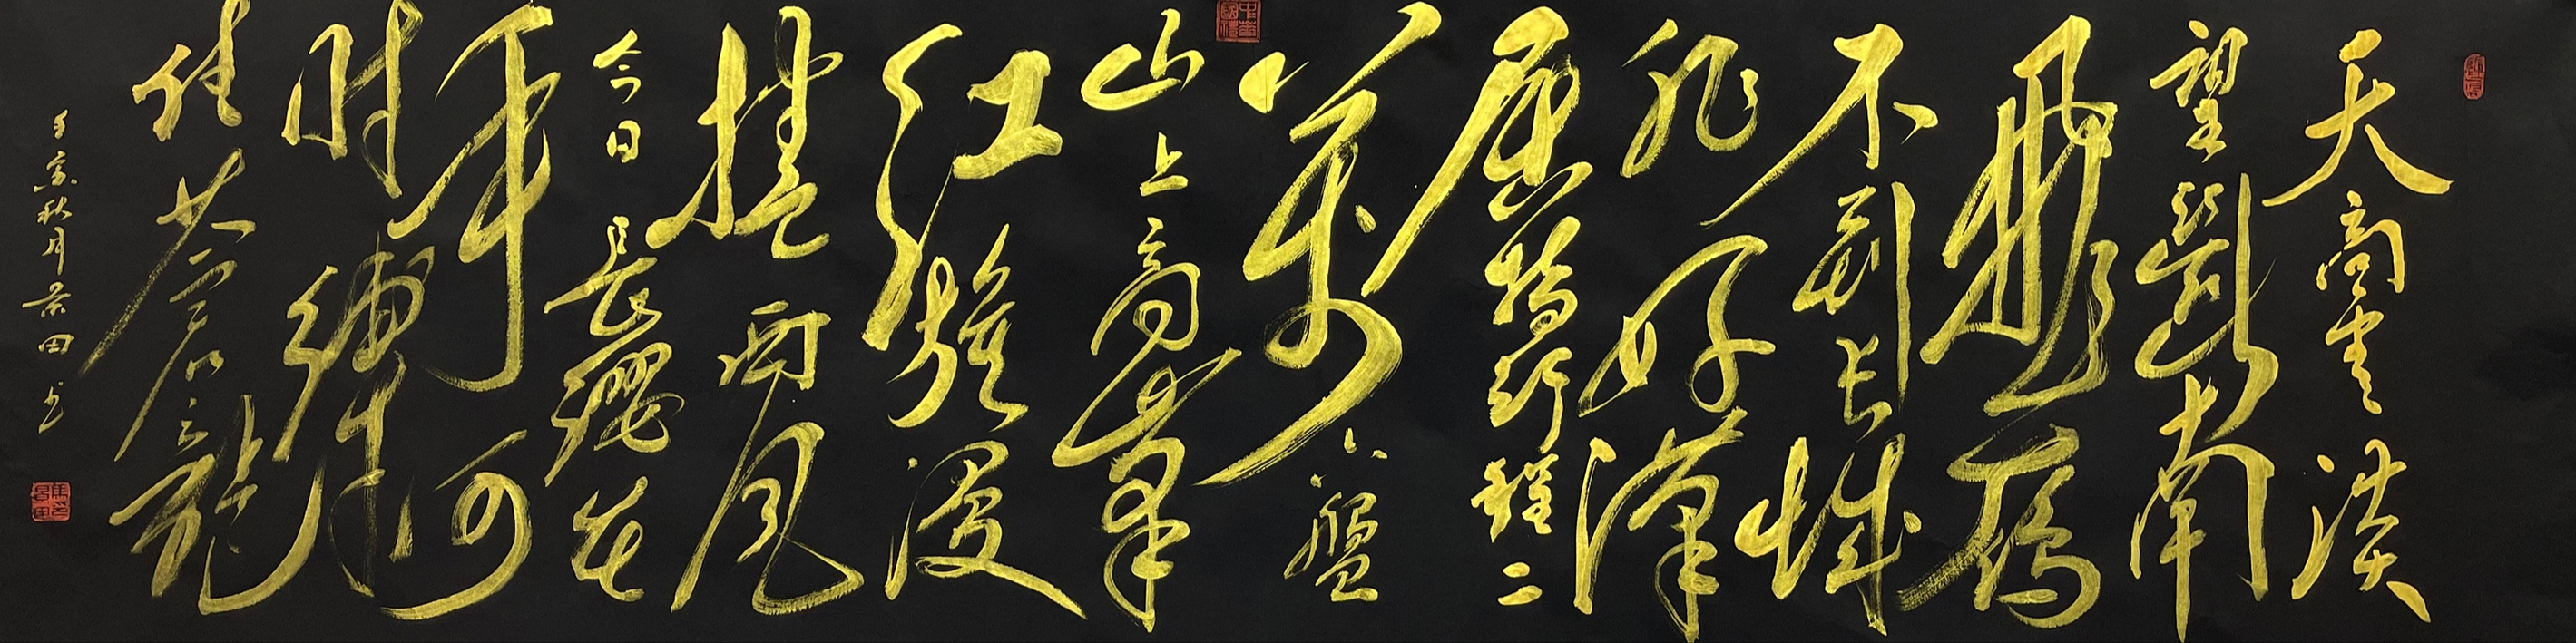 天高雲淡
望斷南
飛雁
不到长城
非好漢
屈指行程二
萬六盤
山上高峰
红旗漫
捲西风
今日長纓在
手何
时缚
住蒼龍
壬寅秋月景田书